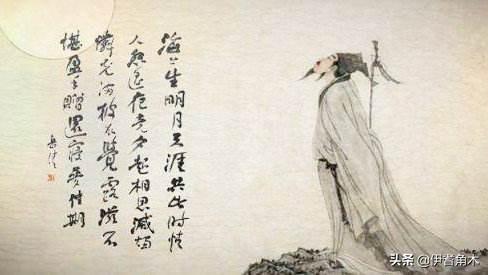 海上生明月天涯共此时情
人怨遥夜竟夕起相思滅燭
憐光满披衣覺露滋不
堪盈手贈還寝夢佳期
头条 @伊睿角木